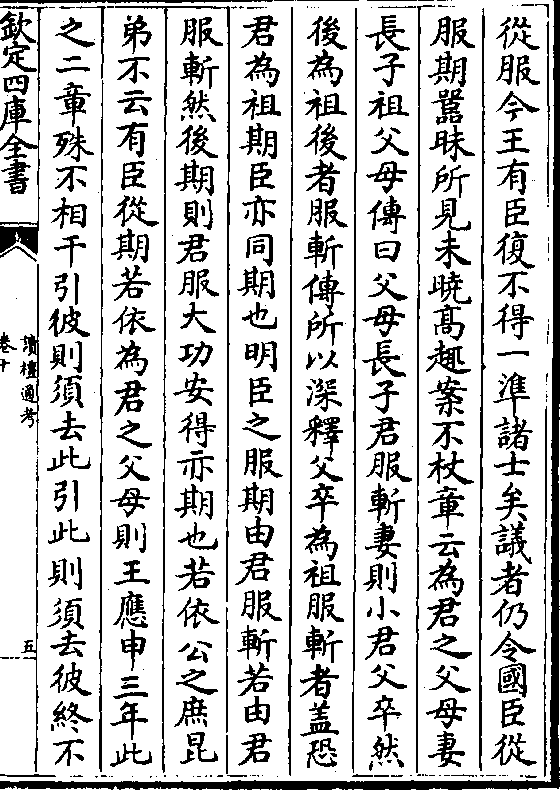 從服今王有臣復不得一準諸士矣議者仍令國臣從
服期嚚昧所見未曉髙趣案不杖章云為君之父母妻
長子祖父母傳曰父母長子君服斬妻則小君父卒然
後為祖後者服斬傳所以深釋父卒為祖服斬者蓋恐
君為祖期臣亦同期也明臣之服期由君服斬若由君
服斬然後期則君服大功安得亦期也若依公之庶昆
弟不云有臣從期若依為君之父母則王應申三年此
之二章殊不相干引彼則須去此引此則須去彼終不
欽定四庫全書
讀禮通考
卷十
五